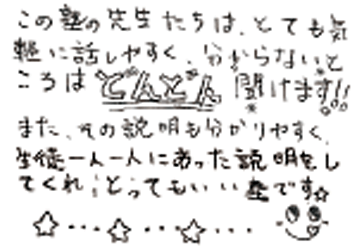 この塾の先生たちは、とても気
軽に話しやすく、分からないと
ころは どんどん 聞けます!!
また、その説明も分かりやすく、
生徒一人一人にあった説明をし
てくれ、とってもいい塾です☆
☆…☆…☆…